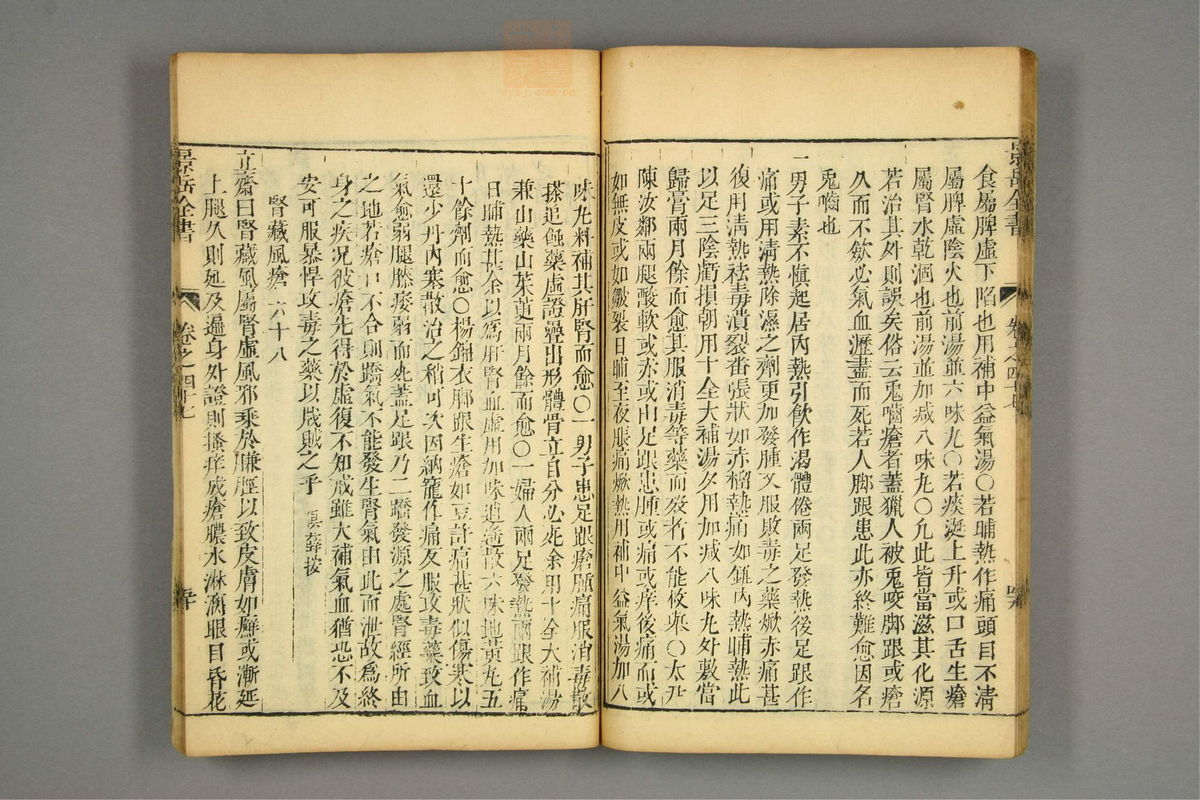 食屬脾虛下陷也用補中益氣湯〇若晡熱作痛頭目不清
屬脾虛陰火也前湯並六味丸〇若痰涎上升或口舌生瘡
屬腎水乾涸也前湯並加減八味丸〇凡此皆當滋其化源
若治其外則誤矣俗云兎嚙瘡者蓋獵人被兎咬脚跟或瘡
久而不歛必氣血瀝盡而死若人脚跟患此亦終難愈因名
兎嚙也
一男子素不愼起居內熱引飲作渴體倦兩足發熱後足跟作
痛或用淸熱除濕之劑更加發腫又服敗毒之藥焮赤痛甚
復用淸熱祛毒潰裂番張狀如赤榴熱痛如錐內熱晡熱此
以足三陰虧損朝用十全大補湯夕用加減八味丸外敷當
歸膏兩月餘而愈其服消毒等藥而歿者不能枚舉〇太尹
陳汝鄰兩腿酸軟或赤或白足跟患腫或痛或痒後痛而或
如無皮或如皺裂日晡至夜脹痛焮熱用補中益氣湯加八
味丸料補其肝腎而愈〇一男子患足跟瘡腫痛服消毒散
搽追蝕藥虛證疊出形體骨立自分必死余用十全大補湯
兼山藥山茱萸兩月餘而愈〇一婦人兩足發熱兩跟作痛
日晡熱甚余以爲肝腎血虛用加味逍遙散六味地黃丸五
十餘劑而愈〇楊錦衣脚跟生瘡如豆許痛甚狀似傷寒以
還少丹內塞散治之稍可次因納寵作痛反服攻毒藥致血
氣愈弱腿膝痿弱而死蓋足跟乃二蹻發源之處腎經所由
之地若瘡口不合則蹻氣不能發生腎氣由此而泄故爲終
身之疾况彼瘡先得於虛復不知戒雖大補氣血猶恐不及
安可服暴悍攻毒之藥以戕賊之乎
腎藏風瘡 六十八
立齋曰腎藏風屬腎虛風邪乘於臁脛以致皮膚如癬或漸延
上腿久則延及遍身外證則搔痒成瘡膿水淋漓眼目昏花
景岳全書
卷之四十七